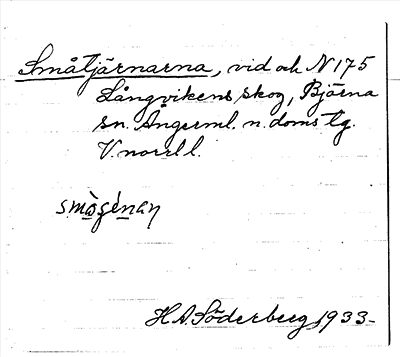 Småtjärnarna, vid och N 175
Långvikens skog, Bjärna
sn. Ångerml. n. doms lg.
V.norrl l.
H A. Söderberg 1933-